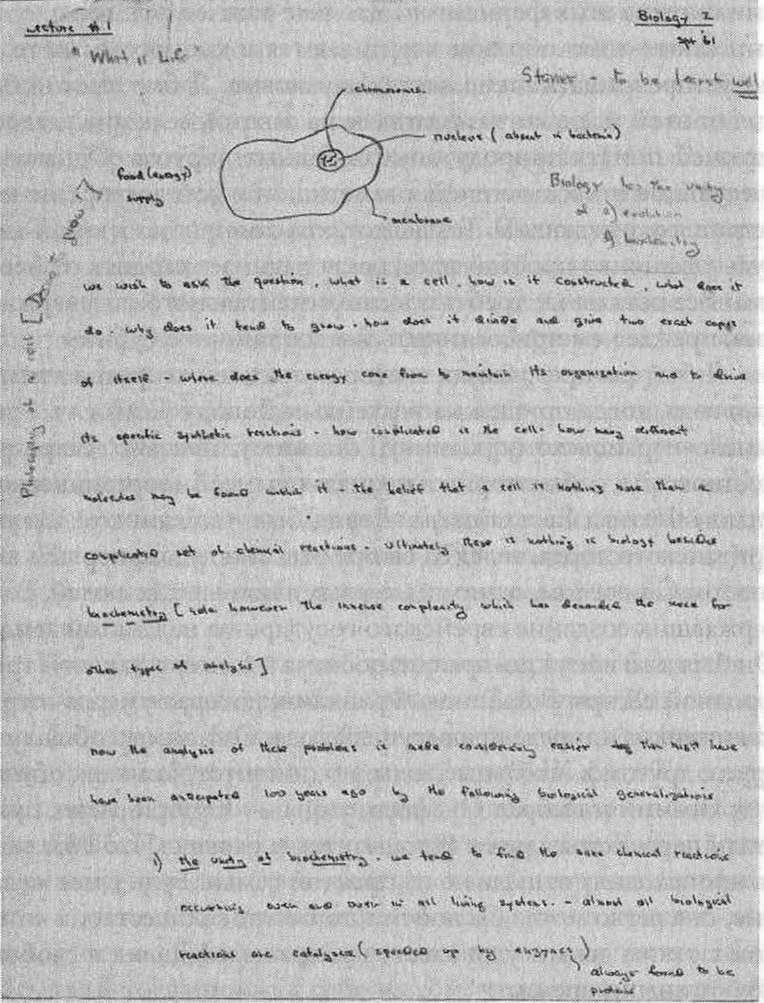 Lecture #1
Biology 2
Spt 61
"What is Life
Stainer - to be learnt well
chromosomes
nucleus (absent in bacteria)
food (energy)
supply
membrane
Biology has the unity
of a) evolution
b) biochemistry
Philosophy of a cell [ grow ]
we wish to ask the question, what is a cell, how is it constructed, what does it
do. why does it tend to grow. how does it divide and give two exact copys
of itself - where does the energy come from to maintain its organization and to drive
its specific synthetic reactions - how complicated is the cell - how many different
molecules may be found within it. The belief that a cell is nothing more than a
complicated set of chemical reactions. ultimately there is nothing in biology besides
biochemistry [note however the immense complexity which has demanded the need for
other types of analysis]
now the analysis of these problems is made considerably easier than might have
been anticipated 100 years ago by the following biological generalizations
1) the unity of biochemistry. we tend to find the same chemical reactions
occurring over and over in all living systems. - almost all biological
reactions are catalyzed (speeded up by enzymes)
always found to be
protein